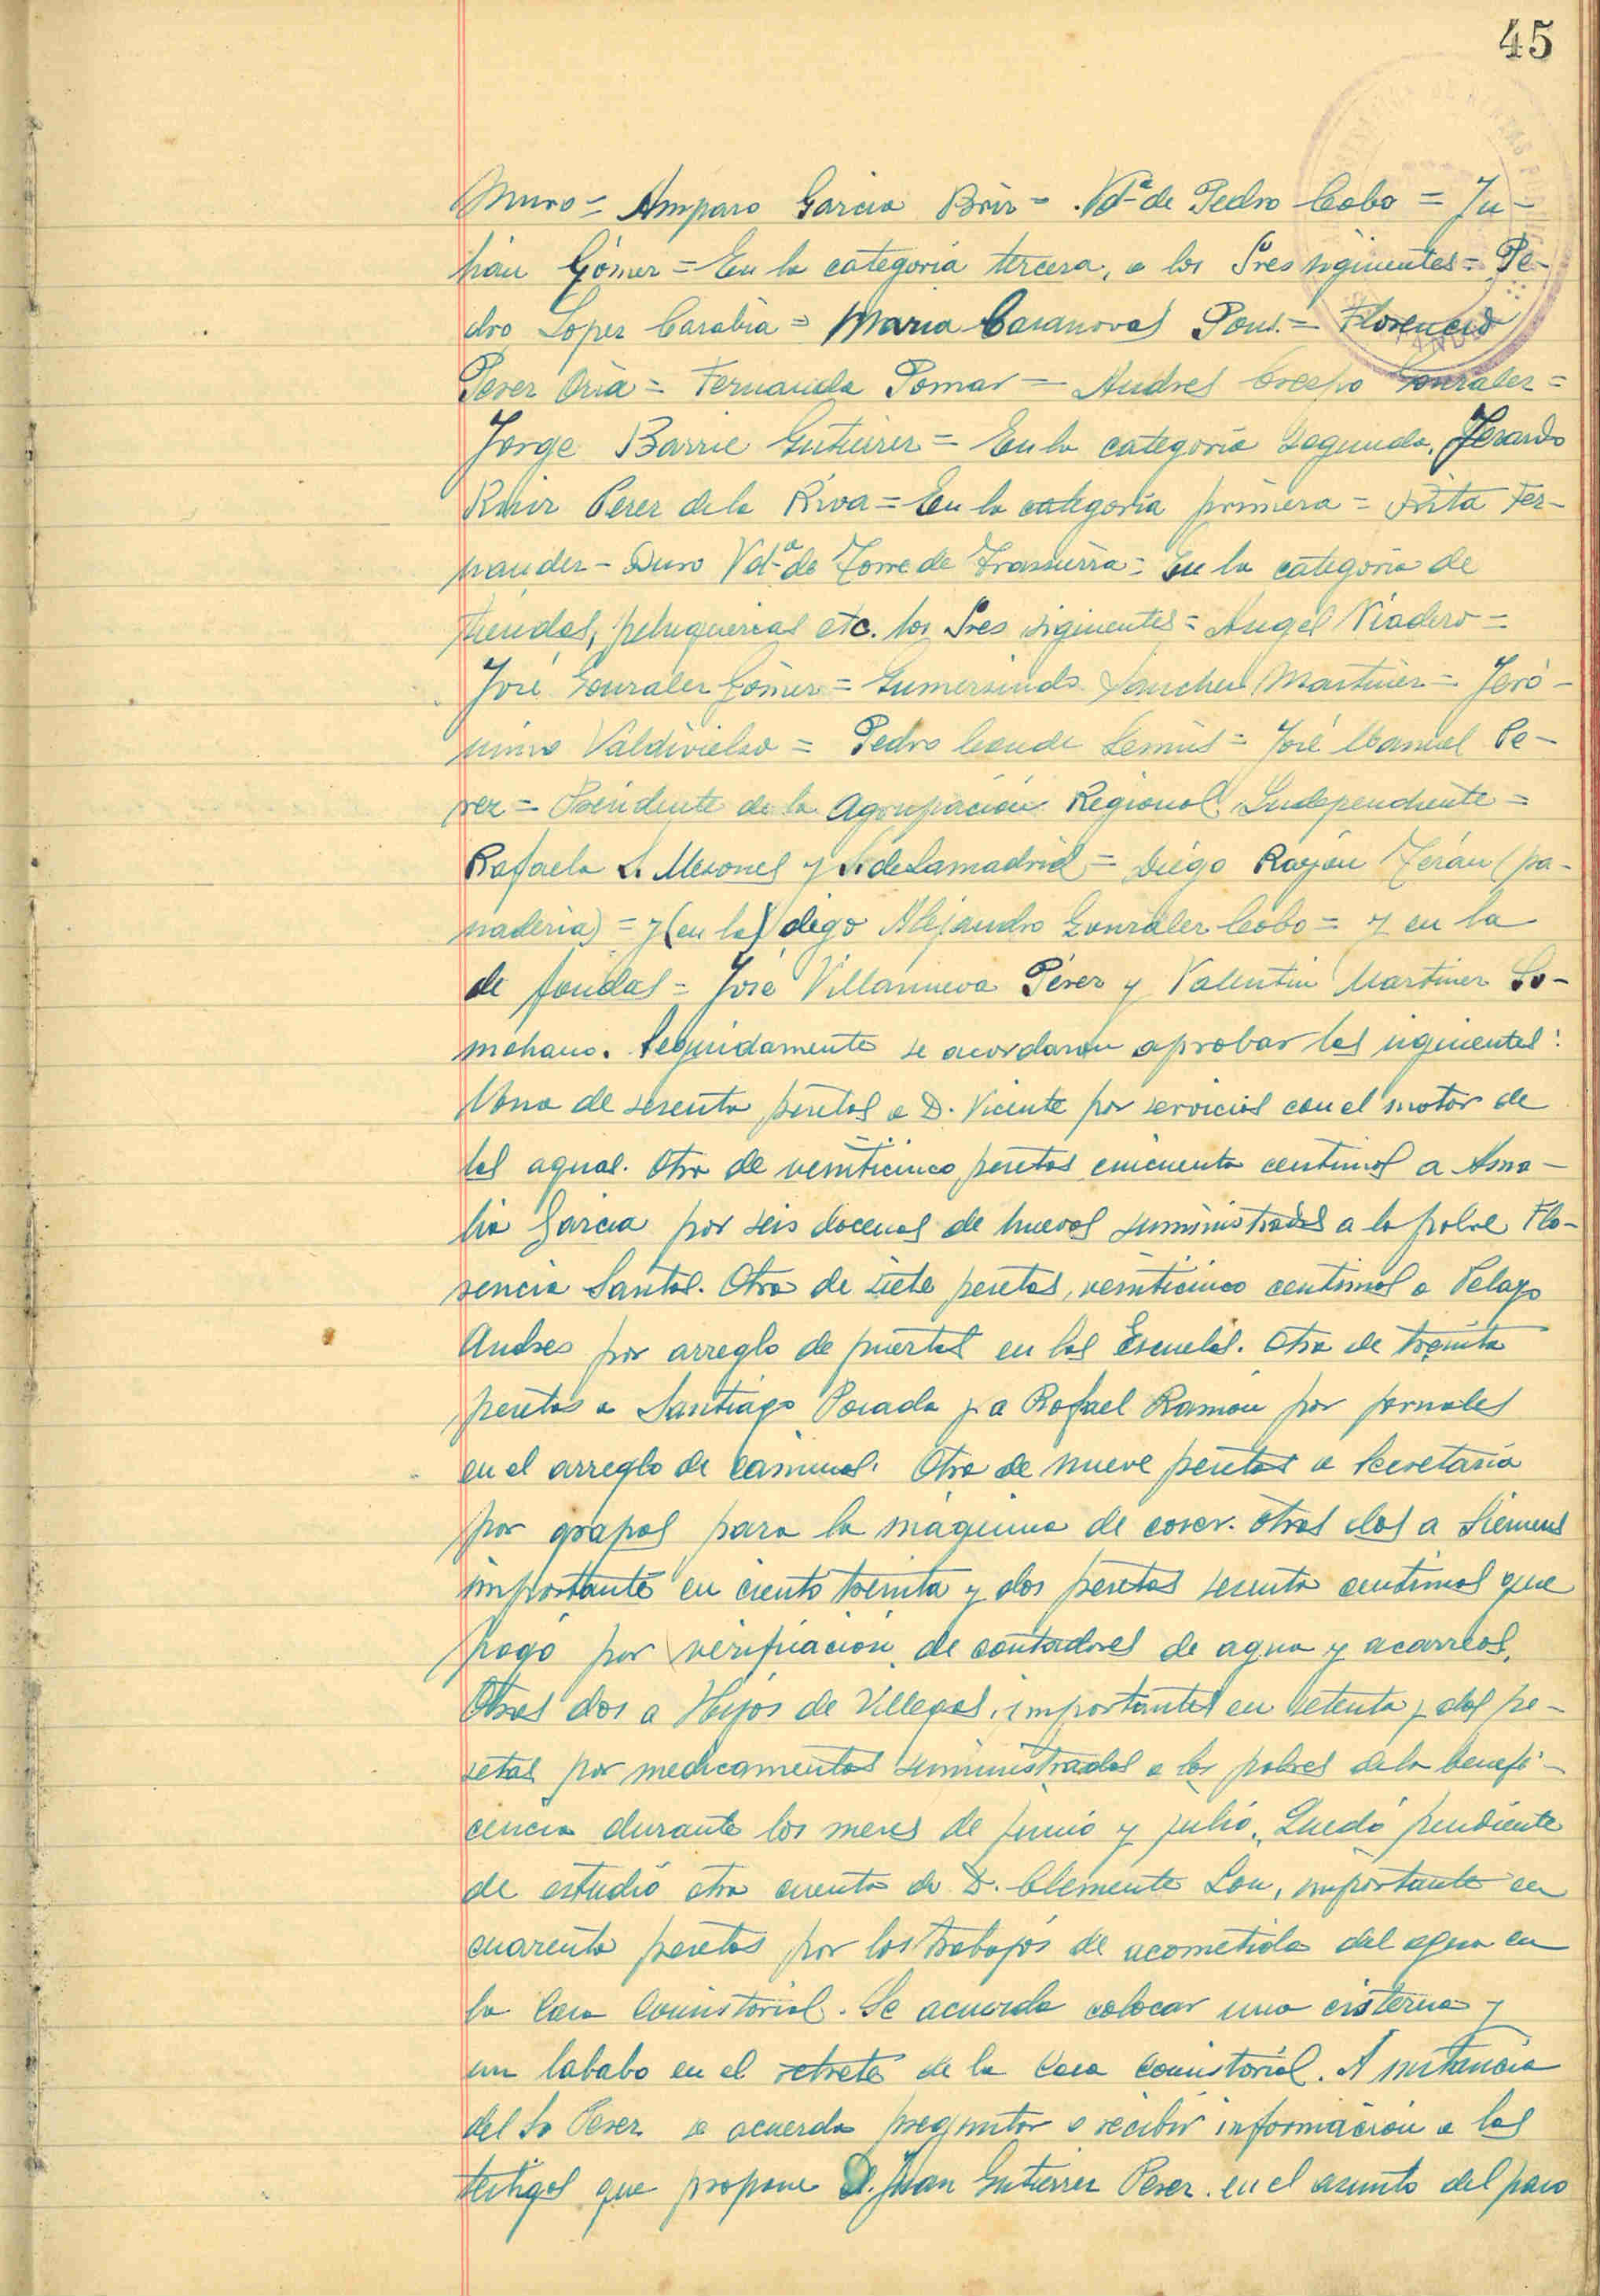 45
Muro = Amparo Garcia Briz = Vdª de Pedro Cobo = Ju-
lián Gómez = En la categoria tercera, a los Sres siguientes = Pe-
dro Lopez Carabia = Maria Casanovas Pons = Florencio
Perez Oria = Fernanda Pomar = Andres Crespo Gonzalez =
Jorge Barrie Gutierrez = En la categoria segunda, Gerardo
Ruiz Perez de la Riva = En la categoria primera = Rita Fer-
nandez - Duro Vdª de Torre de Trassierra = En la categoria de
tiendas, peluquerias etc. los Sres siguientes = Angel Viadero =
José Gonzalez Gómez = Gumersindo Sanchez Martinez = Jeró-
nimo Valdivielso = Pedro Conde = José Manuel Pe-
rez = Presidente de la Agrupación Regional Independiente =
Rafaela S. Mesones y S. de Lamadrid = Diego Rayón Terán (pa-
naderia) = y (en la) digo Alejandro Gonzalez Cobo = y en la
de fondas = José Villanueva Pérez y Valentin Martinez So-
mohano. Seguidamente se acordaron aprobar las siguientes:
Una de sesenta pesetas a D. Vicente por servicios con el motor de
las aguas. Otra de veinticinco pesetas cincuenta centimos a Ama-
lia Garcia por seis docenas de huevos suministrados a la pobre Flo-
rencia Santos. Otra de siete pesetas, veinticinco centimos a Pelayo
Andres por arreglo de puertas en las Escuelas. Otra de treinta
pesetas a Santiago Posada y a Rafael Ramón por jornales
en el arreglo de caminos. Otra de nueve pesetas a Secretaria
por grapas para la máquina de coser. Otras dos a Siemens
importante en ciento treinta y dos pesetas sesenta centimos que
pagó por verificación de contadores de agua y acarreos.
Otras dos a Hijos de Villegas, importantes en setenta y dos pe-
setas por medicamentos suministrados a los pobres de la benefi-
cencia durante los meses de junio y julio. Quedó pendiente
de estudio otra cuenta de D. Clemente Lou, importante en
cuarenta pesetas por los trabajos de acometida del agua en
la Casa Consistorial. Se acuerda colocar una cisterna y
un lababo en el retrete de la Casa Consistorial. A instancia
del Sr Perez se acuerda preguntar o recibir información a los
testigos que propone D. Juan Gutierrez Perez en el asunto del paso